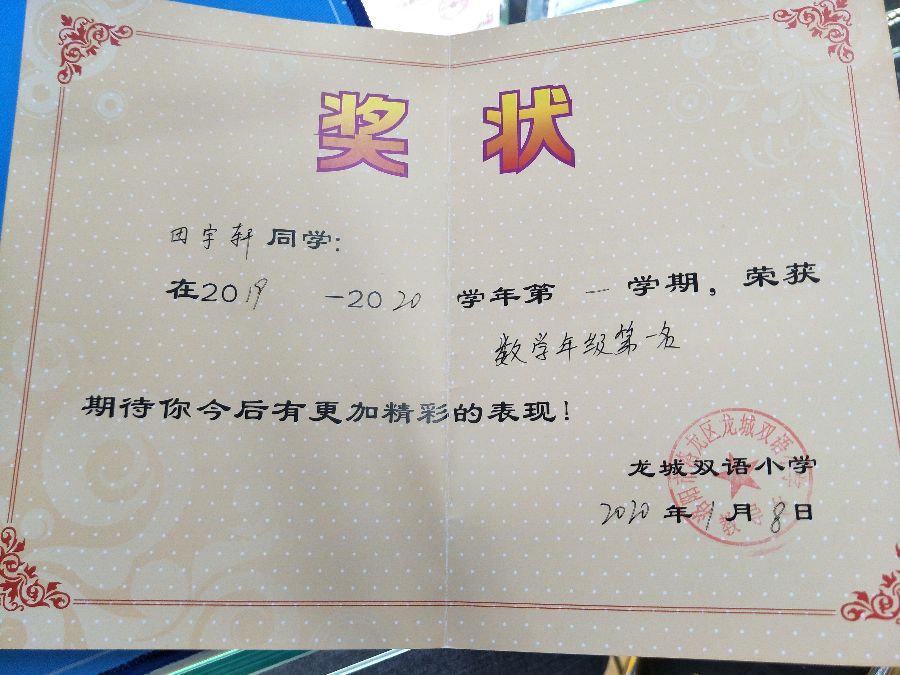 奖状
田宇轩同学：
在2019 -2020 学年第 一 学期，荣获
数学年级第一名
期待你今后有更加精彩的表现！
洛阳市洛龙区龙城双语小学
龙城双语小学
教导处
2020年1月8日